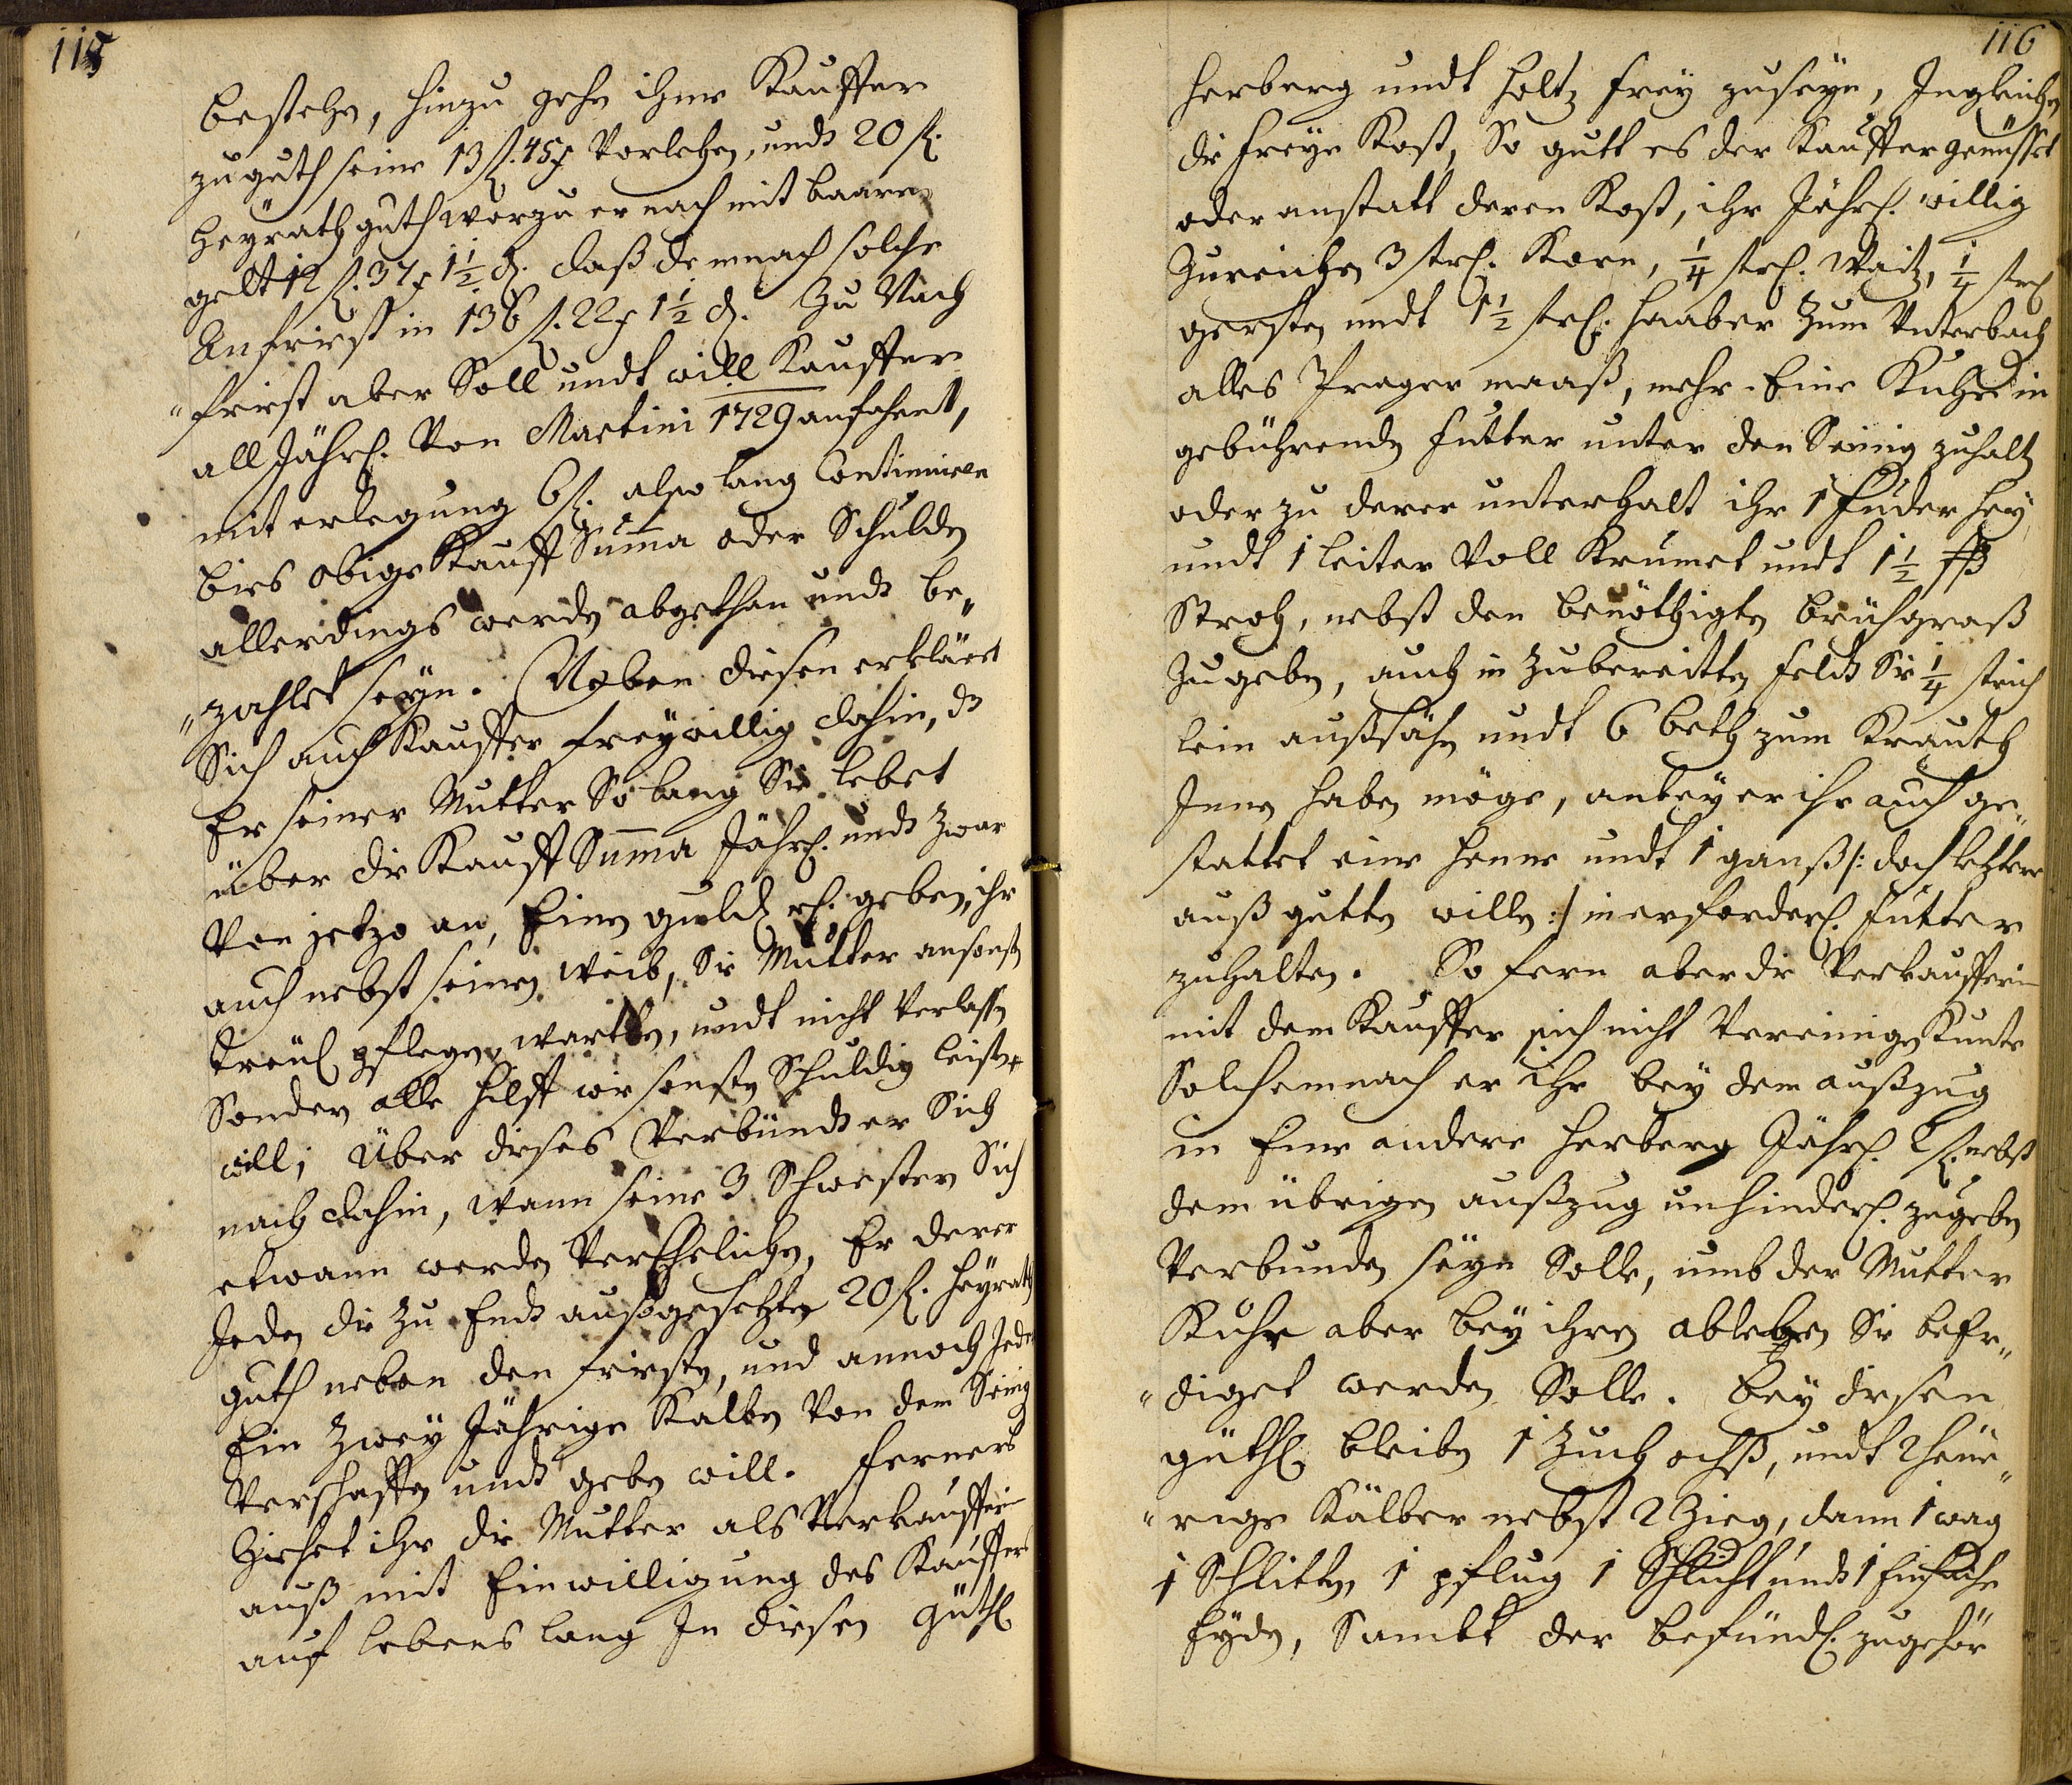 115
bestehen, hinzu gehn ihme Kauffer
zu guth seine 13 fl. 45 x Vorlehen, undt 20 fl.
Heÿrath guth worzu er nach mit baaren
gelt 12 fl. 37 x 1 1/2 d. daß demnach solche
Anfriest in 136 fl. 22 x 1 1/2 d. Zu Nach
"friest aber Soll undt will Kauffer
all Jährl. Von Martini 1729 anfahent,
mit erlegung 6 fl. also lang Continuiren
bies obige Kauff Summa oder Schulden
allerdings werden abgethan undt be„
"zahlet seÿn. Neben diesen erkläret
Sich auch Kauffer freÿwillig dahin, dß
Er seiner Mutter So lang Sie lebet
über die Kauff Summa Jährl. undt zwar
Von jetzo an, Einen guld rh. geben, ihr
auch nebst seinen Weib, die Mutter ansonsten
treül pflegen, wartten, undt nicht Verlassen
Sondern alle hilff wie sonsten Schuldig leisten
will; Über dieses Verbündt er Sich
nach dahin, wann seine 3 Schwestern Sich
etwann werden VerEhelichen, Er derer
Jeden die zu Endt außgesetzten 20 fl. Heÿrath
guth neben den friesten, und annoch Jeder
Ein Zweÿ Jährige Kalben Von dem Seinig
Verschaffen undt geben will. Ferners
Ziehet ihr die Mutter als Verkaufferin
auß mit Einwilligung des Kauffers
auf lebens lang In diesen Güthl
116
Herberg undt Holtz freÿ zuseÿn, Ingleichen
die freÿe Kost, So gutt es der Kauffer genüsset
oder anstatt deren Kost, ihr Jährl. willig
Zureichen 3 strl. Korn, 1/4 strl. Waitz, 1/4 strl
gersten undt 1 1/2 strl. Haaber Zum Unterbach
alles Prager maaß, mehr Eine Kuhe in
gebührenden Futter unter den Seinig zuhalt
oder zu derer unterhalt ihr 1 Fuder Heÿ
undt 1 leiter Voll Krumet undt 1 1/2 ßß
Stroh, nebst den benöthigten brühgraß
Zugeben, auch in Zubereitten Feldt Sie 1/4 strich
lein außsähn undt 6 beth zum Krauth
Inen haben möge, anbeÿ er ihr auch ge„
stattet eine Henne undt 1 ganß /: doch letztere
auß gutten willen :/ in erforderl. Futter
zuhalten. So fern aber die Verkaufferin
mit dem Kauffer sich nicht Vereinigen Kunte
Solchemnach er ihr beÿ dem außzug
in Eine andere Herberg Jährl. 2 fl. nebst
dem übrigen außzug unhinderl. zugeben
Verbunden seÿe Solle, umb der Mutter
Kuhe aber beÿ ihren ableben Sie befr„
"diget werden Solle. Beÿ diesen
güthl bleiben 1 Zuch ochß, undt 2 heue„
"rige Kälber nebst 2 Zieg, dann 1 wag
1 Schlitten, 1 pflug 1 Schlicht undt 1 Einfache
Eÿden, Sambt der befündl. zugehör